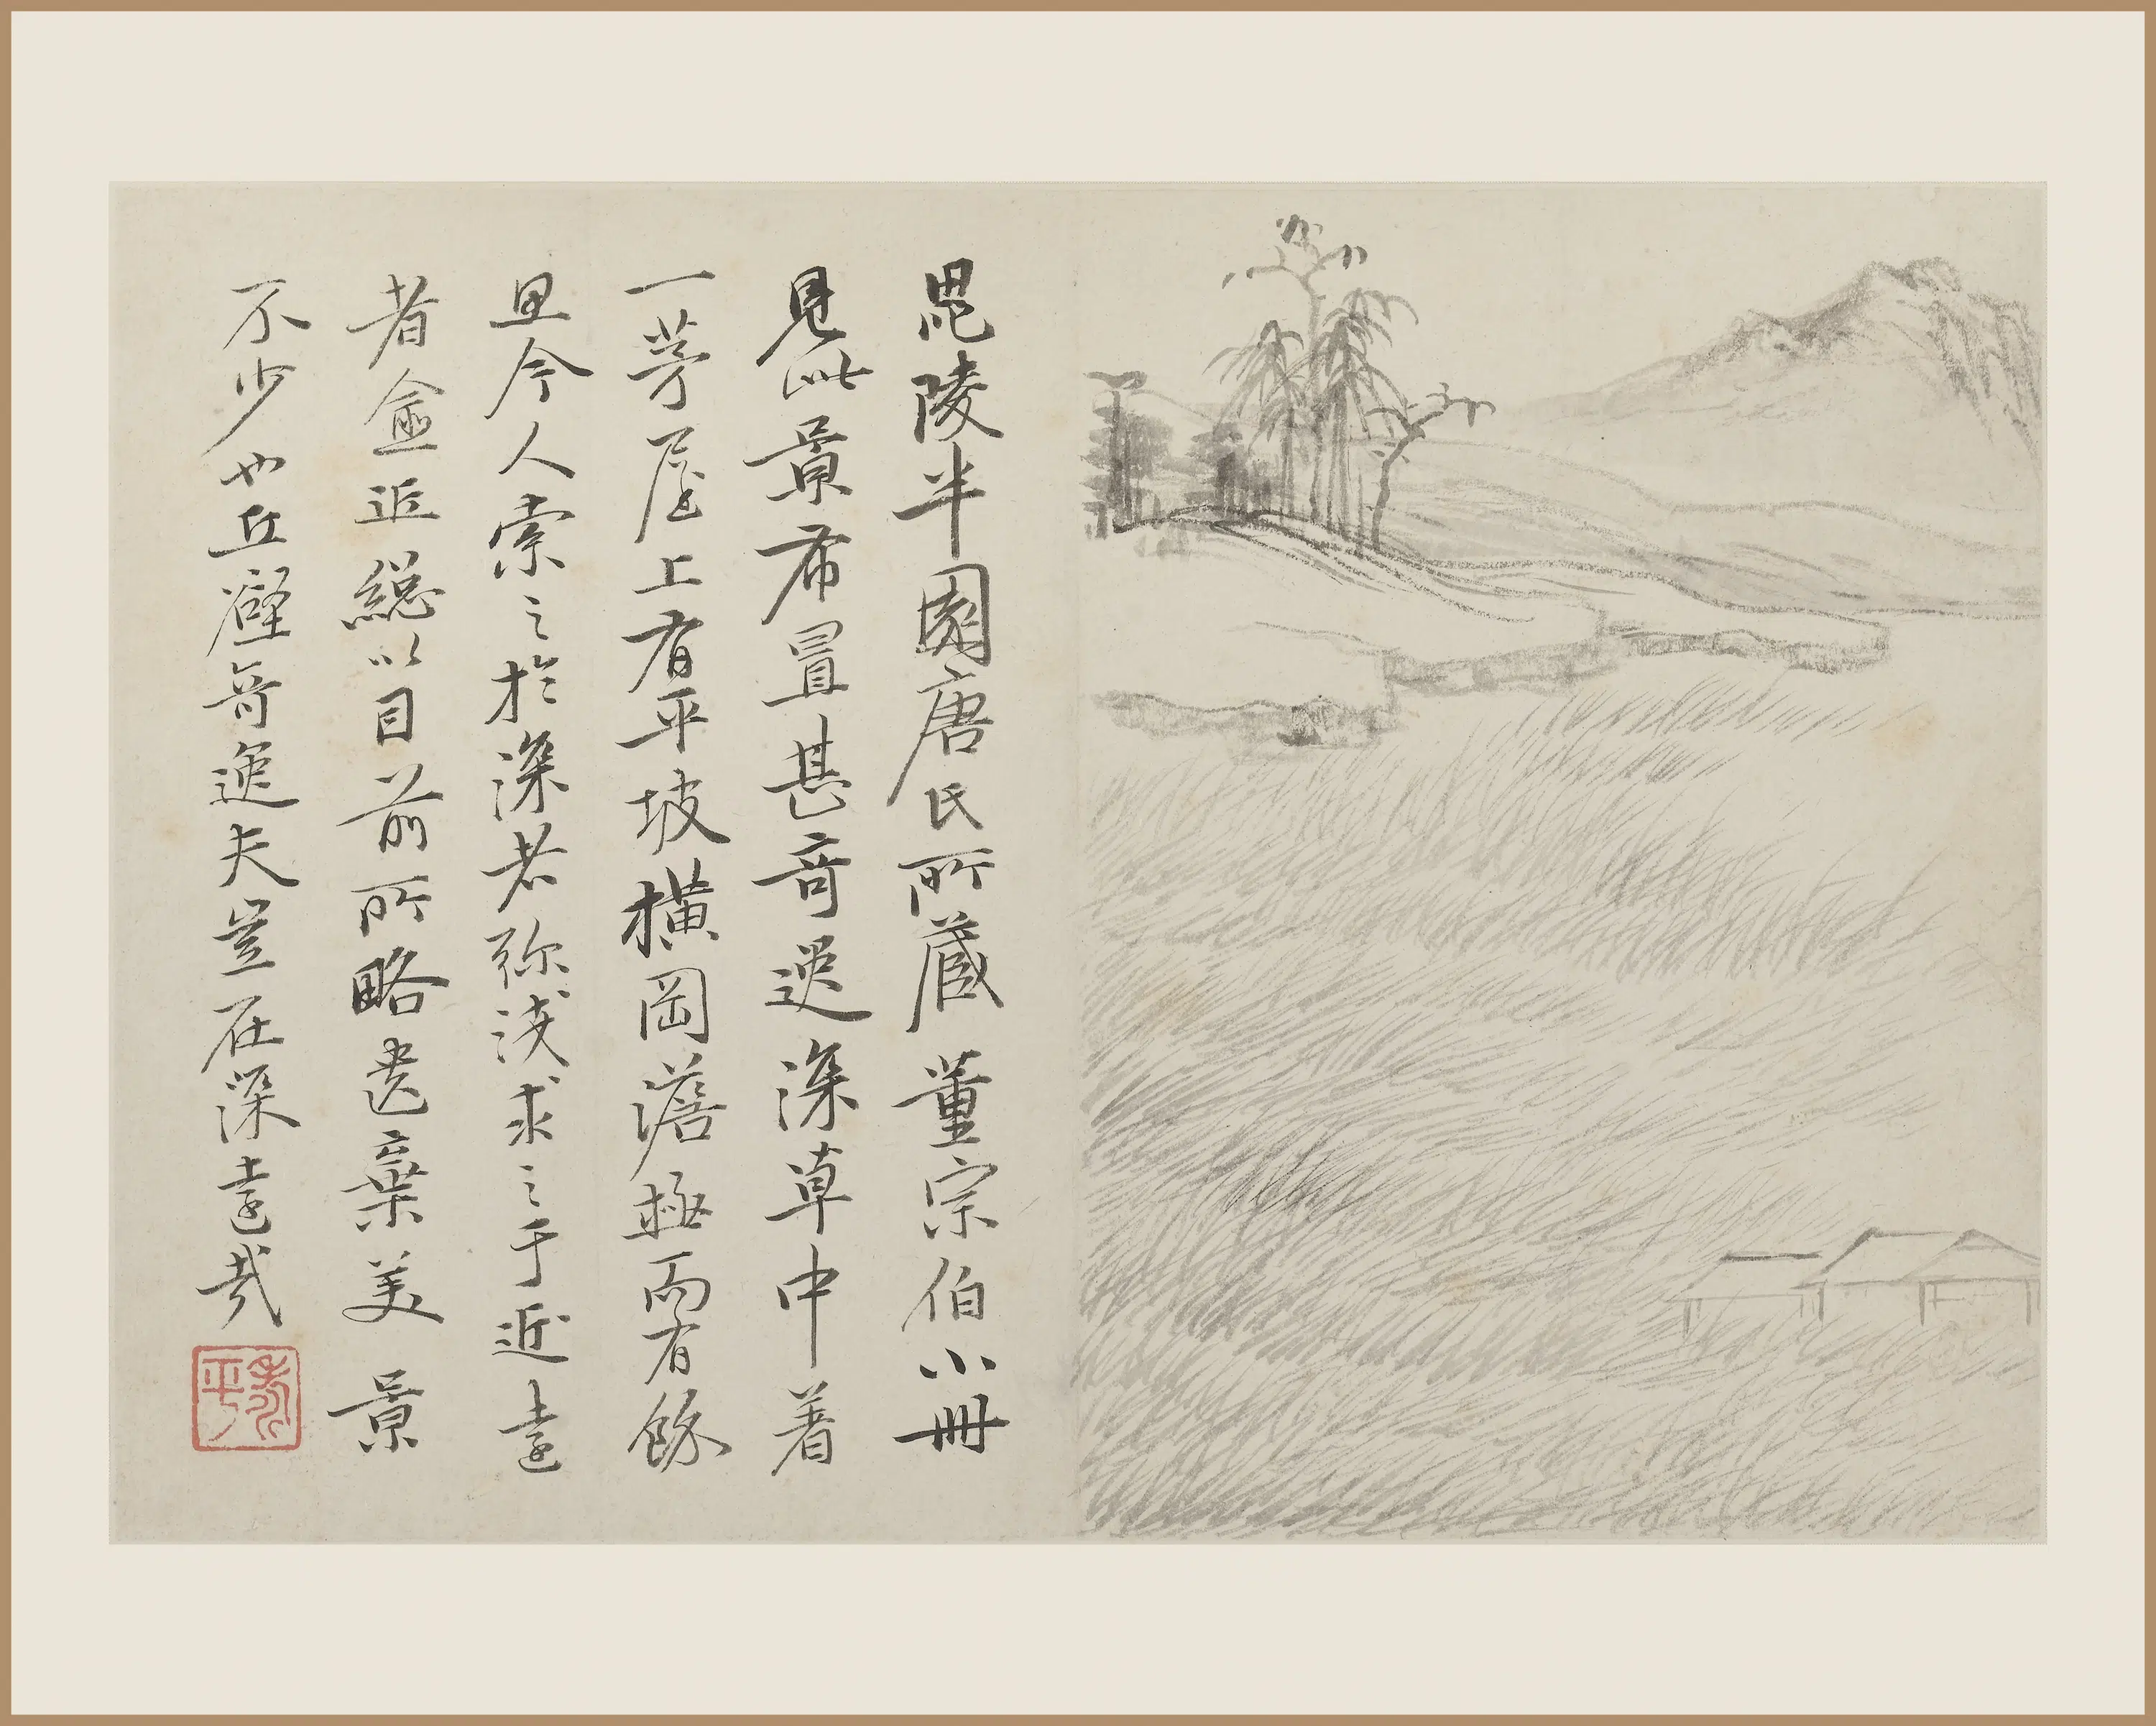 毘陵半園唐氏所藏董宗伯小冊
見此景布置甚奇邃深草中著
一茅屋上有平坡橫岡澹極而有餘
思今人索之於深者弥淺求之于近遠
者僉近總以目前所略遺棄美景
不少也丘壑奇逸夫豈在深遠哉